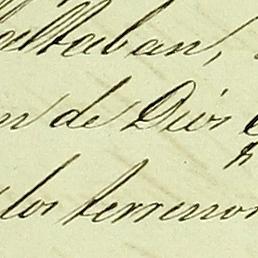 faltaban,
n de Dios
los terrenos